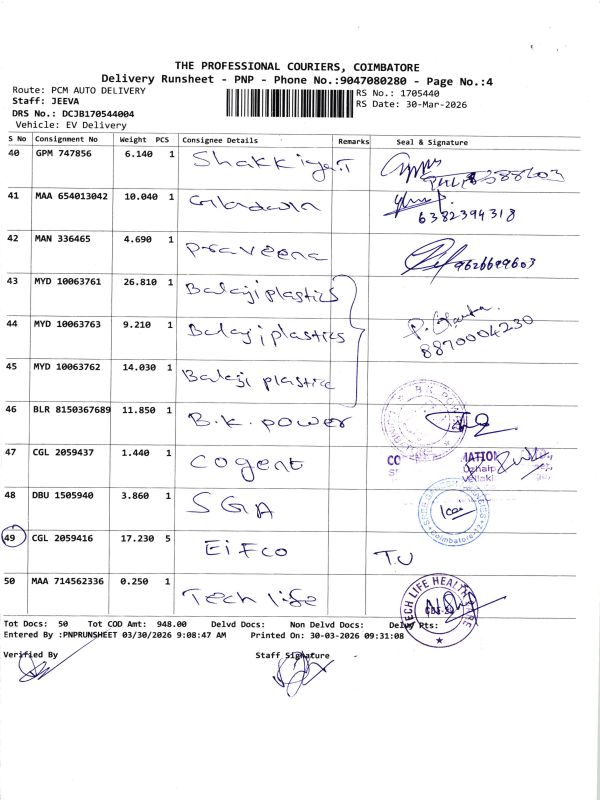 THE PROFESSIONAL COURIERS, COIMBATORE
Delivery Runsheet - PNP - Phone No.:9047080280 - Page No.:4
Route: PCM AUTO DELIVERY
RS No.: 1705440
Staff: JEEVA
RS Date: 30-Mar-2026
DRS No.: DCJB170544004
Vehicle: EV Delivery
S No Consignment No Weight PCS Consignee Details Remarks Seal & Signature
40 GPM 747856 6.140 1 Shakkiya.T
41 MAA 654013042 10.040 1
6382394318
42 MAN 336465 4.690 1 Praveena 9626699603
43 MYD 10063761 26.810 1 Balaji plastics
44 MYD 10063763 9.210 1 Balaji plastics
8870004230
45 MYD 10063762 14.030 1 Balaji plastics
46 BLR 8150367689 11.850 1 B.K. power
47 CGL 2059437 1.440 1 Cogent
48 DBU 1505940 3.860 1 SGA
Coimbatore-12
49 CGL 2059416 17.230 5 Eifco T.U
50 MAA 714562336 0.250 1 Tech life
TECH LIFE HEALTHCARE
Tot Docs: 50 Tot COD Amt: 948.00 Delvd Docs: Non Delvd Docs: Delvy Pts:
Entered By :PNPRUNSHEET 03/30/2026 9:08:47 AM Printed On: 30-03-2026 09:31:08
Verified By Staff Signature